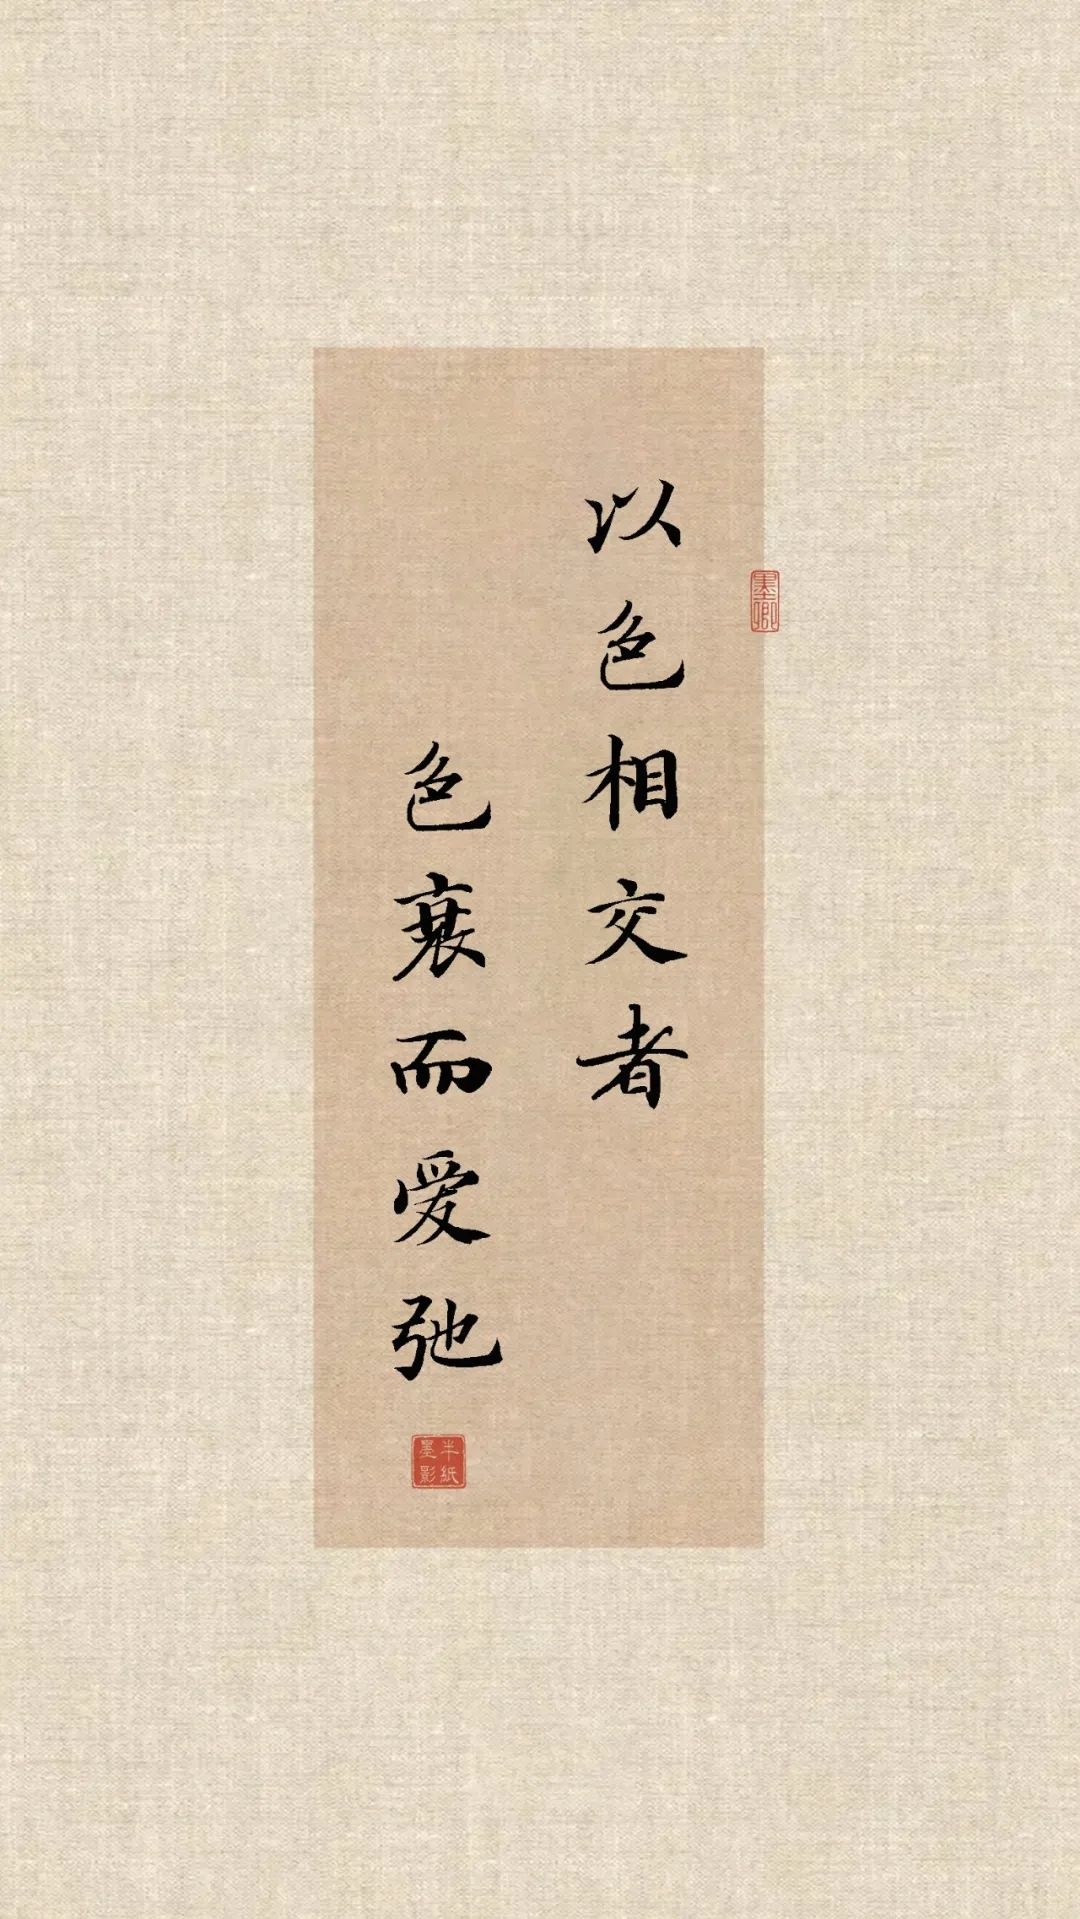 以色相交者
色衰而爱弛
墨卿
半纸
墨影